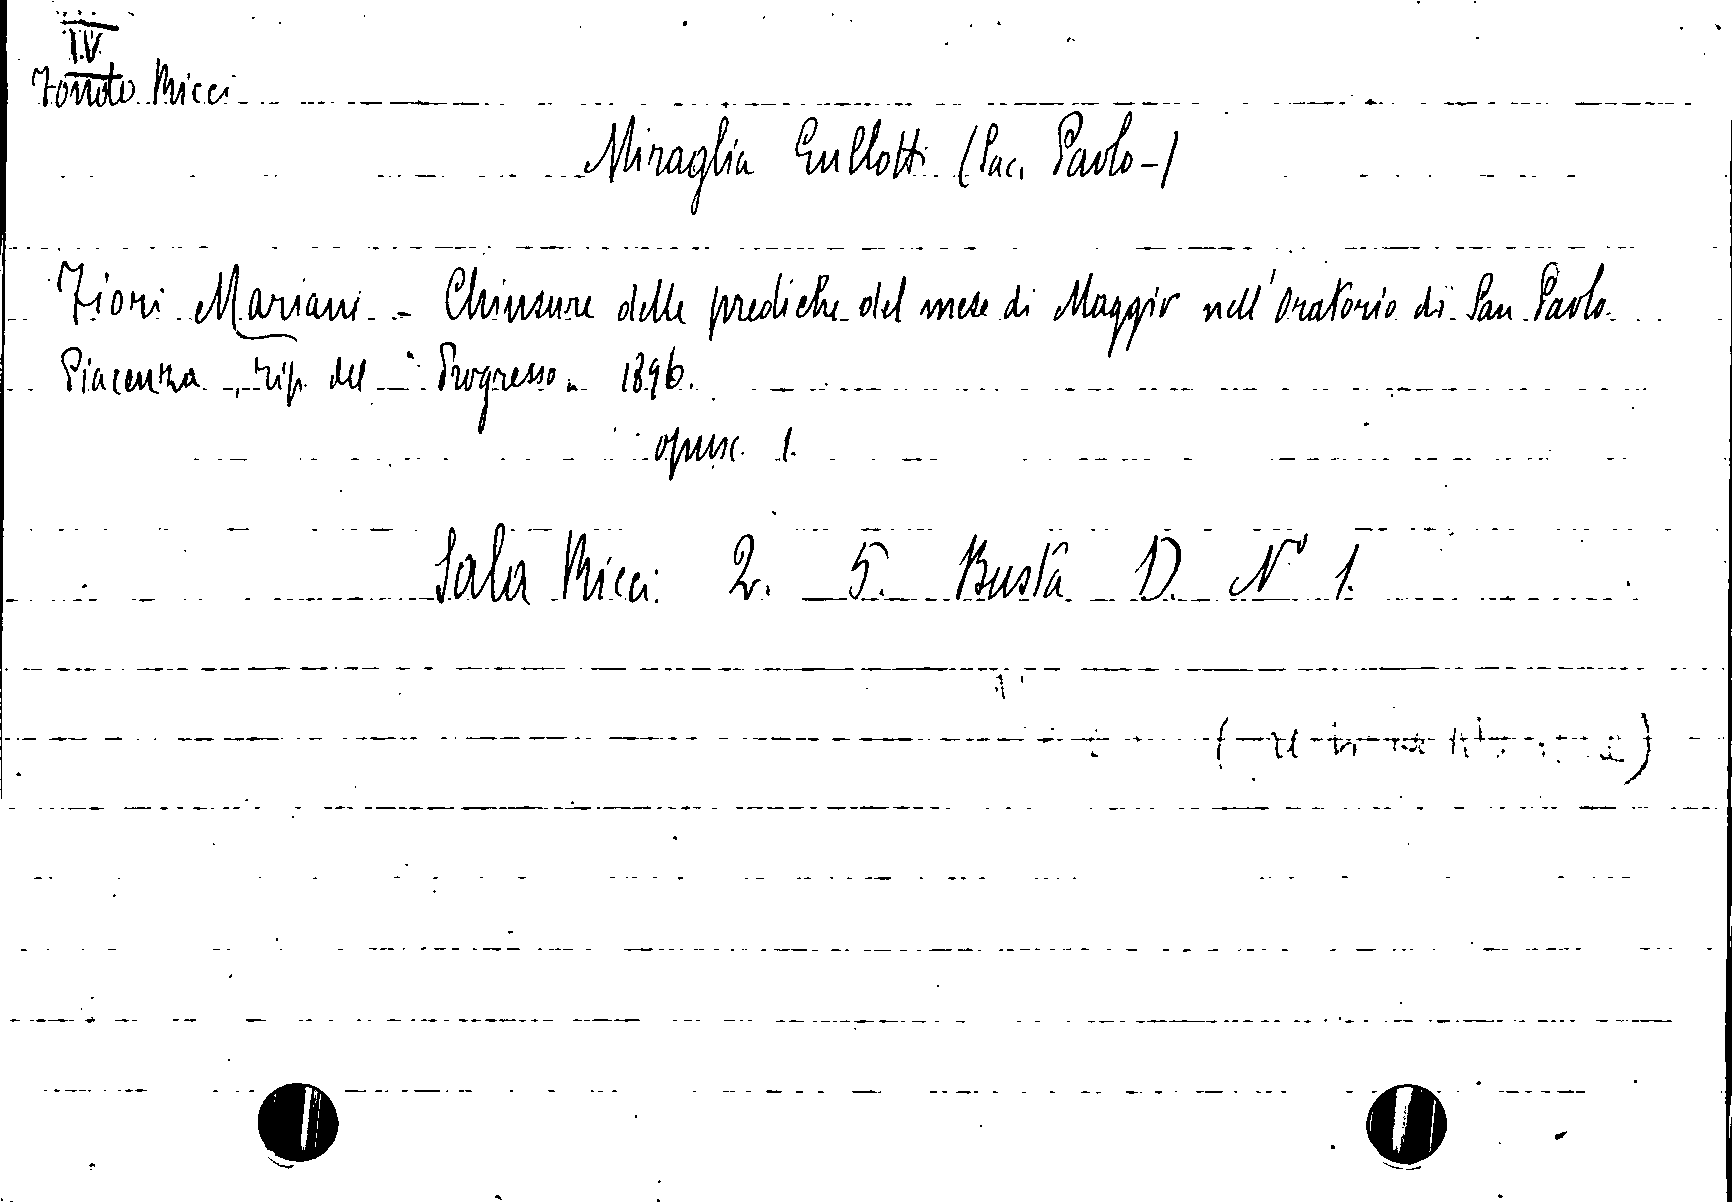 I.V.
Fondo Ricci
Miraglia Gullotti (Sac. Paolo-)
Fiori Mariani - Chiusure delle prediche del mese di Maggio nell'Oratorio di San Paolo.
Piacenza, tip. del "Progresso" 1896.
opusc. 1.
Sala Ricci 2. 5. Busta D. N° 1.